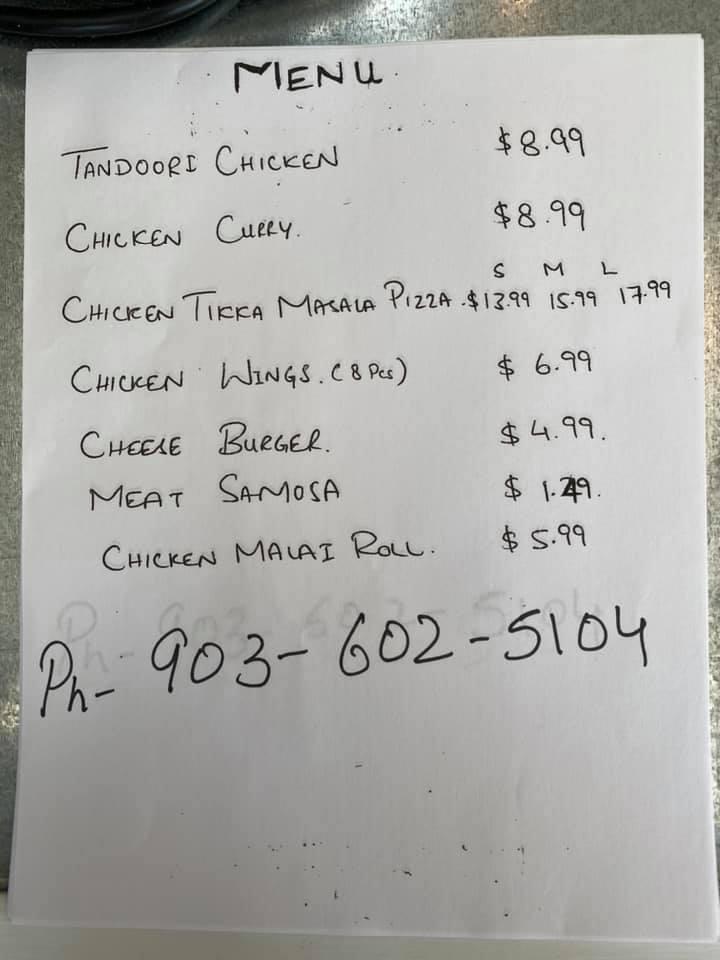 MENU
TANDOORI CHICKEN $8.99
CHICKEN CURRY. $8.99
S M L
CHICKEN TIKKA MASALA PIZZA. $13.99 15.99 17.99
CHICKEN WINGS. (8 Pcs) $ 6.99
CHEESE BURGER. $ 4.99.
MEAT SAMOSA $
CHICKEN MALAI ROLL. $ 5.99
Ph- 903-602-5104